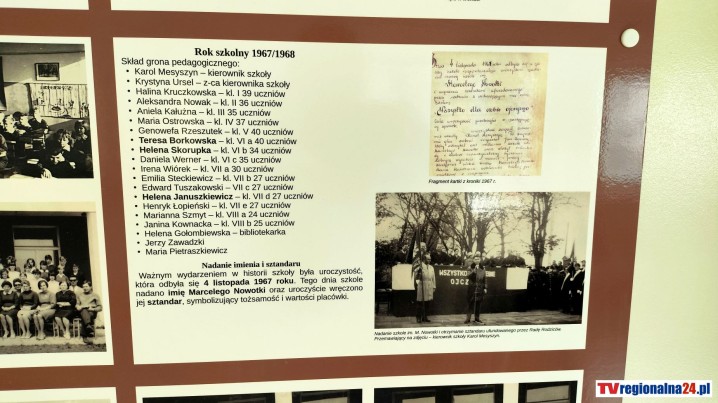 Rok szkolny 1967/1968
Skład grona pedagogicznego:
• Karol Mesyszyn – kierownik szkoły
• Krystyna Ursel – z-ca kierownika szkoły
• Halina Kruczkowska – kl. I 39 uczniów
• Aleksandra Nowak – kl. II 36 uczniów
• Aniela Kałużna – kl. III 35 uczniów
• Maria Ostrowska – kl. IV 37 uczniów
• Genowefa Rzeszutek – kl. V 40 uczniów
• Teresa Borkowska – kl. VI a 40 uczniów
• Helena Skorupka – kl. VI b 34 uczniów
• Daniela Werner – kl. VI c 35 uczniów
• Irena Wiórek – kl. VII a 30 uczniów
• Emilia Steckiewicz – kl. VII b 27 uczniów
• Edward Tuszakowski – VII c 27 uczniów
• Helena Januszkiewicz – kl. VII d 27 uczniów
• Henryk Łopieński – kl. VII e 27 uczniów
• Marianna Szmyt – kl. VIII a 24 uczniów
• Janina Kownacka – kl. VIII b 25 uczniów
• Helena Gołombiewska – bibliotekarka
• Jerzy Zawadzki
• Maria Pietraszkiewicz
Nadanie imienia i sztandaru
Ważnym wydarzeniem w historii szkoły była uroczystość,
która odbyła się 4 listopada 1967 roku. Tego dnia szkole
nadano imię Marcelego Nowotki oraz uroczyście wręczono
jej sztandar, symbolizujący tożsamość i wartości placówki.
Fragment kartki z kroniki 1967 r.
WSZYSTKO
OJCZ
Nadanie szkole im. M. Nowotki i otrzymanie sztandaru ufundowanego przez Radę Rodziców
Przemawiający na zdjęciu – kierownik szkoły Karol Mesyszyn.
TVregionalna24.pl